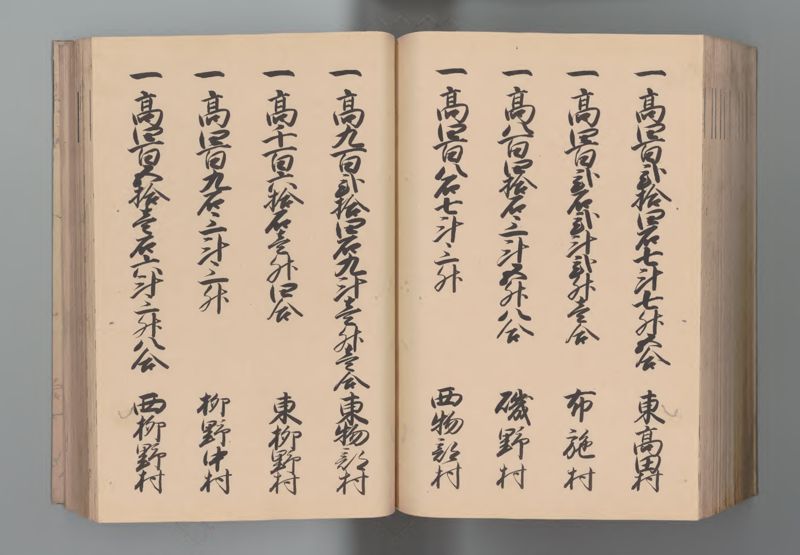 一 高四百弐拾四石七斗七升五合 東高田村
一 高四百弐石弐斗弐升壱合 布施村
一 高八百四拾石三斗五升八合 磯野村
一 高四百八石七斗三升 西物部村
一 高九百弐拾四石九斗壱升壱合 東物部村
一 高千百六拾石壱升四合 東柳野村
一 高四百九石三斗三升 柳野中村
一 高四百五拾壱石六斗三升八合 西柳野村